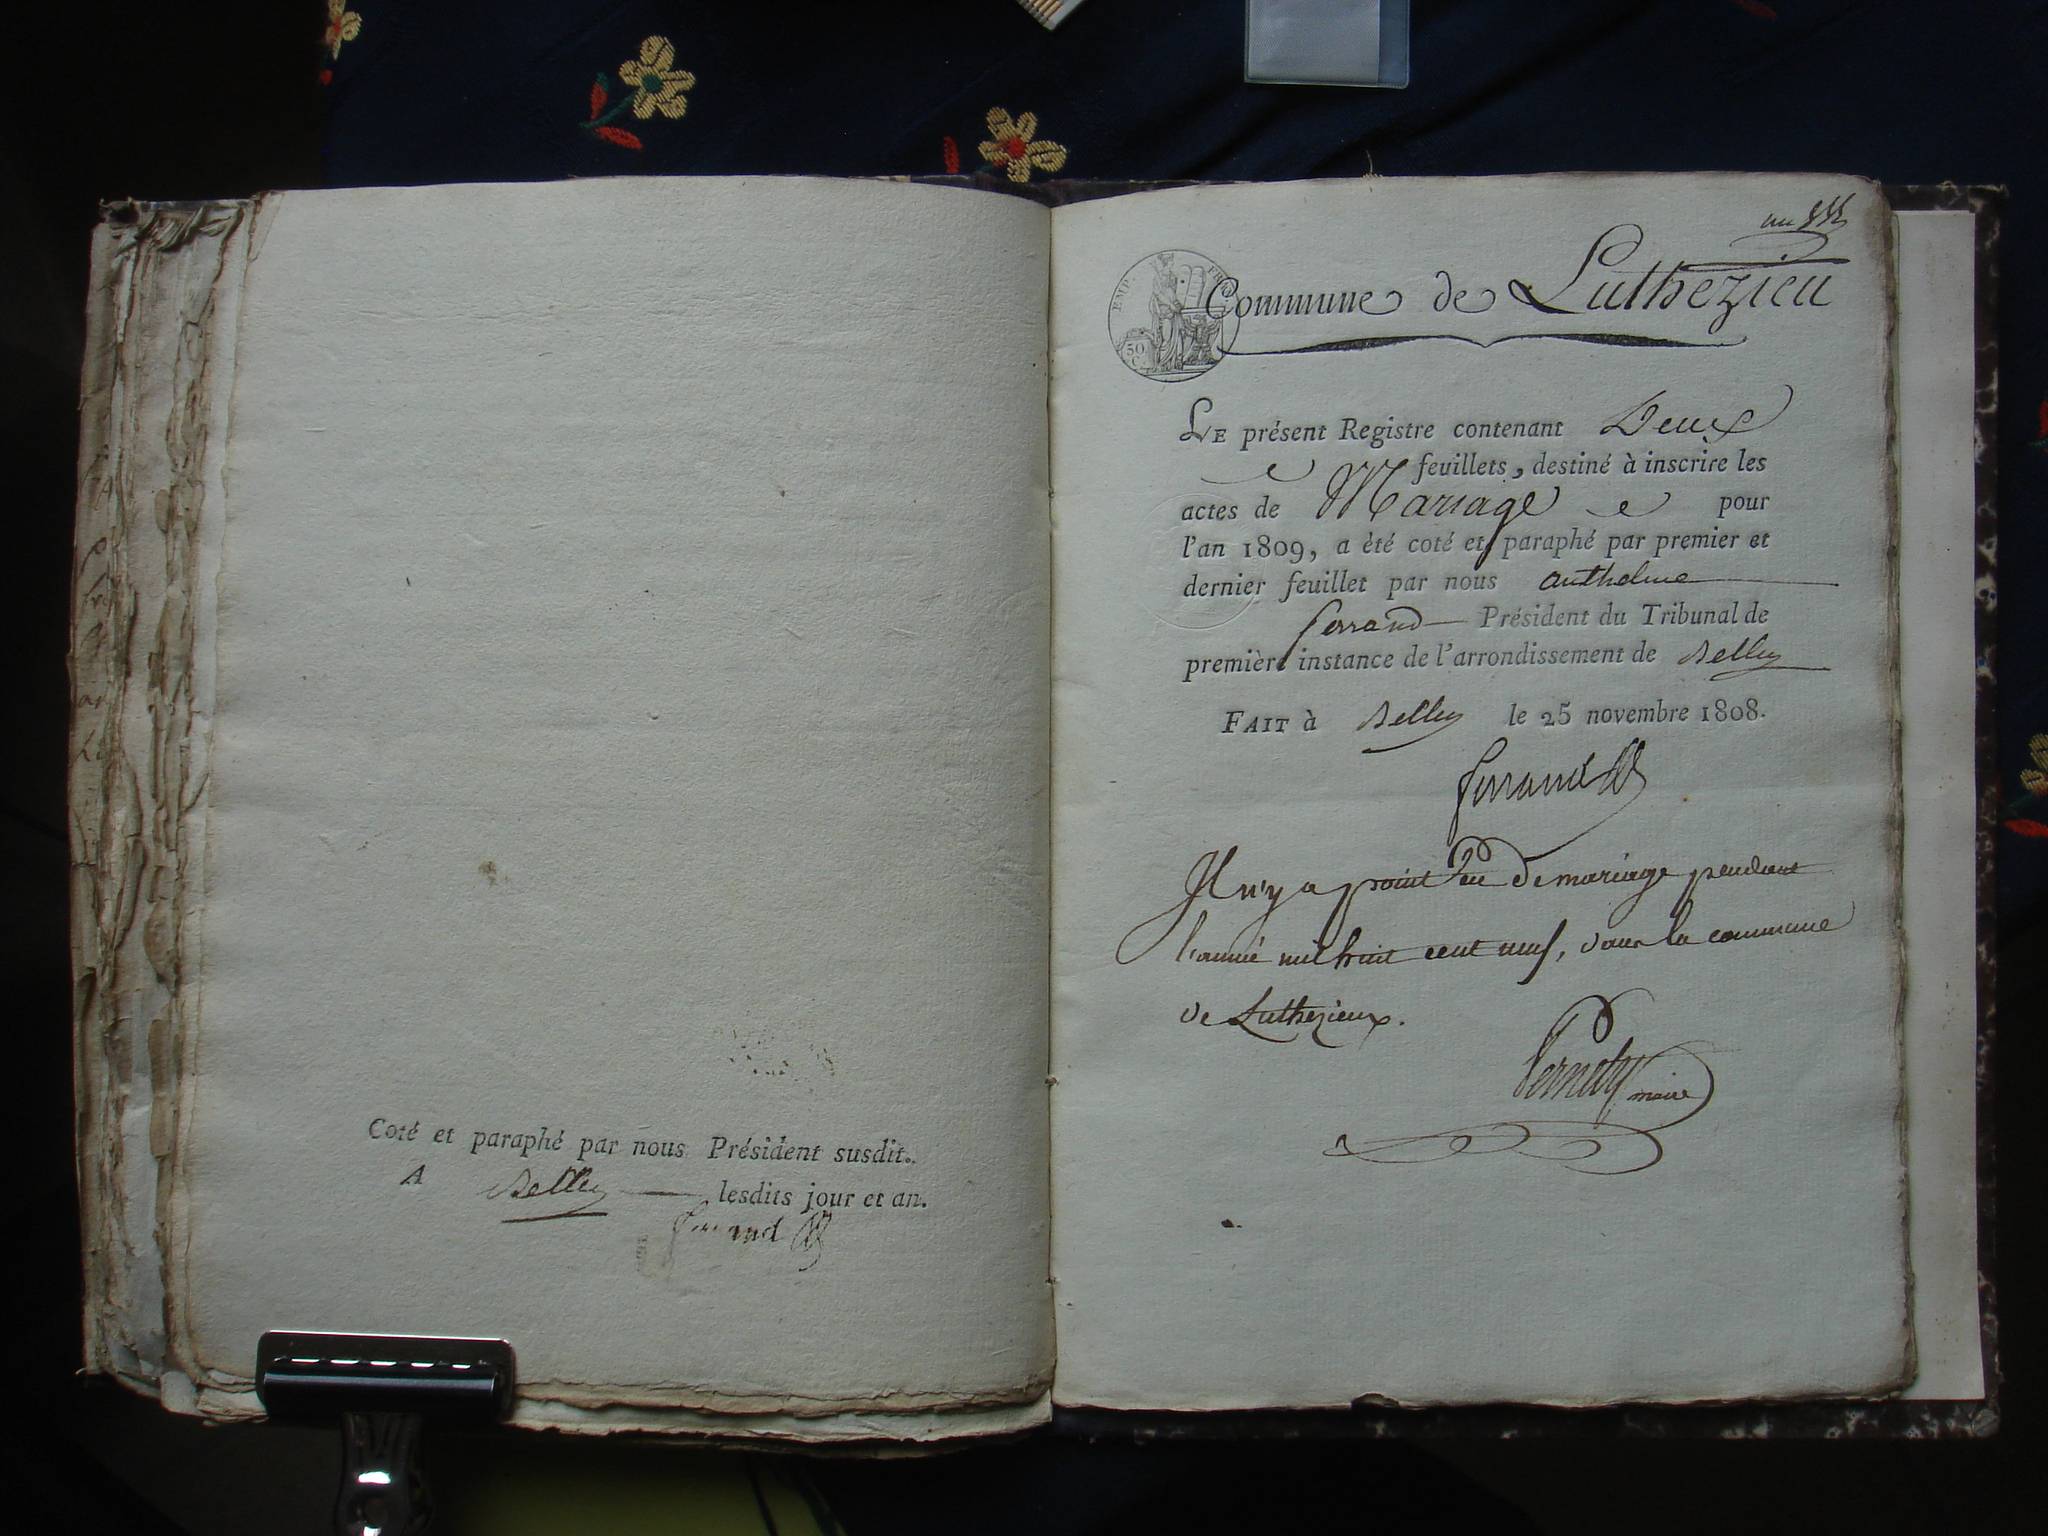 Coté et paraphé par nous Président susdit.
A Belley lesdits jour et an.
Ferrand
un
EMP. FR
50
C.
Commune de Luthezieu
LE présent Registre contenant Deux
feuillets, destiné à inscrire les
actes de Mariage pour
l'an 1809, a été coté et paraphé par premier et
dernier feuillet par nous anthelme
ferrand Président du Tribunal de
première instance de l'arrondissement de Belley
FAIT à Belley le 25 novembre 1808.
ferrand
Il n'y a point eu de mariage pendant
l'année mil huit cent neuf, dans la commune
de Luthezieux.
Pernety maire